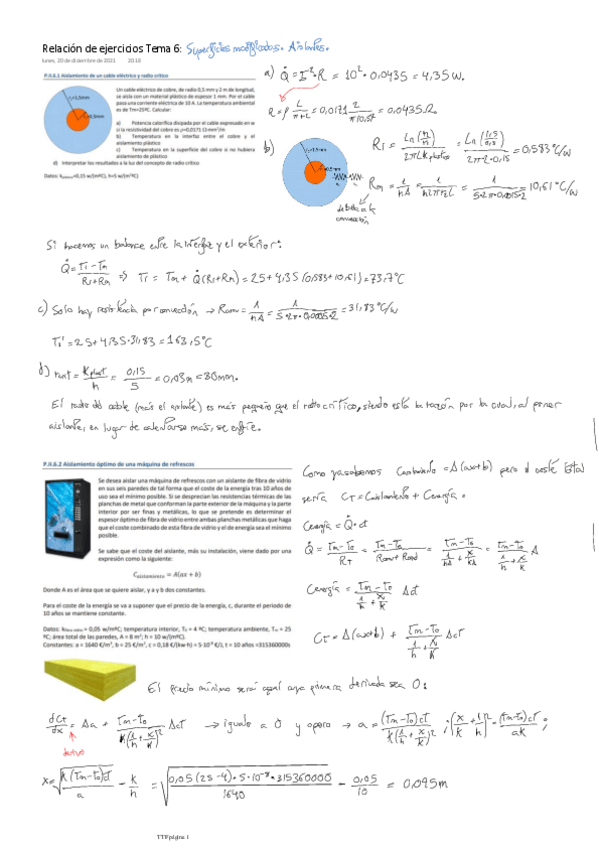 Relación de ejercicios Tema 6: Superficies modificadas. Aislantes.
lunes, 20 de diciembre de 2021 20:18
P.II.6.1 Aislamiento de un cable eléctrico y radio crítico
Un cable eléctrico de cobre, de radio 0,5 mm y 2 m de longitud, se aísla con un material plástico de espesor 1 mm. Por el cable pasa una corriente eléctrica de 10 A. La temperatura ambiental es de Tm=25ºC. Calcular.
a) Potencia calorífica disipada por el cable expresando en w si la resistividad del cobre es ρ=0,0171 Ω·mm²/m
b) Temperatura en la interfaz entre el cobre y el aislamiento plástico
c) Temperatura en la superficie del cobre si no hubiera aislamiento de plástico
d) Interpretar los resultados a la luz del concepto de radio crítico
Datos: k=0,15 w/(mºC), h=5 w/(m²ºC)
a) Q̇ = I²·R = 10²·0,0435 = 4,35 W.
R = ρ L/(π r²) = 0,0171 2/(π 0,5²) = 0,0435 Ω.
b) R₁ = Ln(r₂/r₁)/(2πLKplástico) = Ln(1,5/0,5)/(2π2·0,15) = 0,583 ºC/W
R∞ = 1/(hA) = 1/(h2πr₂L) = 1/(5·2π·0,0015·2) = 10,61 ºC/W
debida a la convección
Si hacemos un balance entre la interfaz y el exterior:
Q̇ = (T₁-T∞)/(R₁+R∞) ⇒ T₁ = T∞ + Q̇(R₁+R∞) = 25+4,35(0,583+10,61) = 73,7ºC
c) Solo hay resistencia por convección → Rconv = 1/(hA) = 1/(5·2π·0,0005·2) = 31,83 ºC/W
T₁' = 25+4,35·31,83 = 163,5ºC
d) rcrit = Kplast/h = 0,15/5 = 0,03m = 30mm.
El radio del cable (más el aislante) es más pequeño que el radio crítico, siendo esta la razón por la cual, al poner
aislante, en lugar de calentarse más, se enfría.
P.II.6.2 Aislamiento óptimo de una máquina de refrescos
Se desea aislar una máquina de refrescos con un aislante de fibra de vidrio en sus seis paredes de tal forma que el coste de la energía tras 10 años de uso sea el mínimo posible. Si se desprecian las resistencias térmicas de las planchas de metal que conforman la parte exterior de la máquina y la parte interior por ser finas y metálicas, lo que se pretende es determinar el espesor óptimo de fibra de vidrio entre ambas planchas metálicas que haga que el coste combinado de esta fibra de vidrio y el de energía sea el mínimo posible.
Se sabe que el coste del aislante, más su instalación, viene dado por una expresión como la siguiente:
C_aislamiento = A(ax + b)
Donde A es el área que se quiere aislar, y a y b dos constantes.
Para el coste de la energía se va a suponer que el precio de la energía, c, durante el periodo de 10 años se mantiene constante.
Datos: k fibra vidrio = 0,05 w/mºC; temperatura interior, T₀ = 4 ºC; temperatura ambiente, T∞ = 25 ºC; área total de las paredes, A = 8 m²; h = 10 w/(mºC).
Constantes: a = 1640 €/m³, b = 25 €/m², c = 0,18 €/(kw·h) = 5·10⁻⁸ €/J, t = 10 años =315360000s
Como ya sabemos Caislamiento = A(ax+b) pero el coste total
sería CT = Caislamiento + Cenergía.
Cenergía = Q̇·ct
Q̇ = (T∞-T₀)/RT = (T∞-T₀)/(Rconv+Rcond) = (T∞-T₀)/(1/(hA)+x/(kA)) = (T∞-T₀)/(1/h+x/k) A
Cenergía = (T∞-T₀)/(1/h+x/k) Act
CT = A(ax+b) + (T∞-T₀)/(1/h+x/k) Act
El precio mínimo será aquel cuya primera derivada sea 0:
dCt/dx = Aa + (T∞-T₀)/(k(1/h+x/k)²) Act → igualo a 0 y opero → a = (T∞-T₀)cT/(k(1/h+x/k)²) ; (x/k+1/h)² = (T∞-T₀)cT/(ak) ;
x = √(k(T∞-T₀)ct/a) - k/h = √(0,05(25-4)·5·10⁻⁸·315360000/1640) - 0,05/10 = 0,095m
TTF página 1